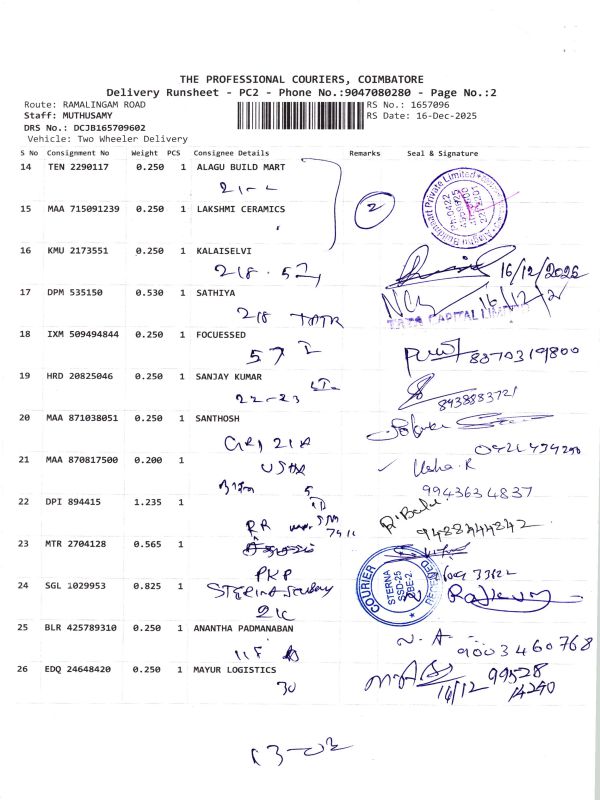 THE PROFESSIONAL COURIERS, COIMBATORE
Delivery Runsheet - PC2 - Phone No.:9047080280 - Page No.:2
Route: RAMALINGAM ROAD
RS No.: 1657096
Staff: MUTHUSAMY
RS Date: 16-Dec-2025
DRS No.: DCJB165709602
Vehicle: Two Wheeler Delivery
S No Consignment No Weight PCS Consignee Details Remarks Seal & Signature
14 TEN 2290117 0.250 1 ALAGU BUILD MART
2
15 MAA 715091239 0.250 1 LAKSHMI CERAMICS
16 KMU 2173551 0.250 1 KALAISELVI
218.57 16/12/2026
17 DPM 535150 0.530 1 SATHIYA
218 16/12
TATA CAPITAL
18 IXM 509494844 0.250 1 FOCUESSED
57 8870319800
19 HRD 20825046 0.250 1 SANJAY KUMAR
22-23 8938883721
20 MAA 871038051 0.250 1 SANTHOSH
21 MAA 870817500 0.200 1
USHA Usha.R
9943634837
22 DPI 894415 1.235 1
RR
23 MTR 2704128 0.565 1
PKP
24 SGL 1029953 0.825 1
COURIER
STERNA
SSD-25
RECEIVED
25 BLR 425789310 0.250 1 ANANTHA PADMANABAN
11F N.A 9003460768
26 EDQ 24648420 0.250 1 MAYUR LOGISTICS
30 99528
14240
13-02